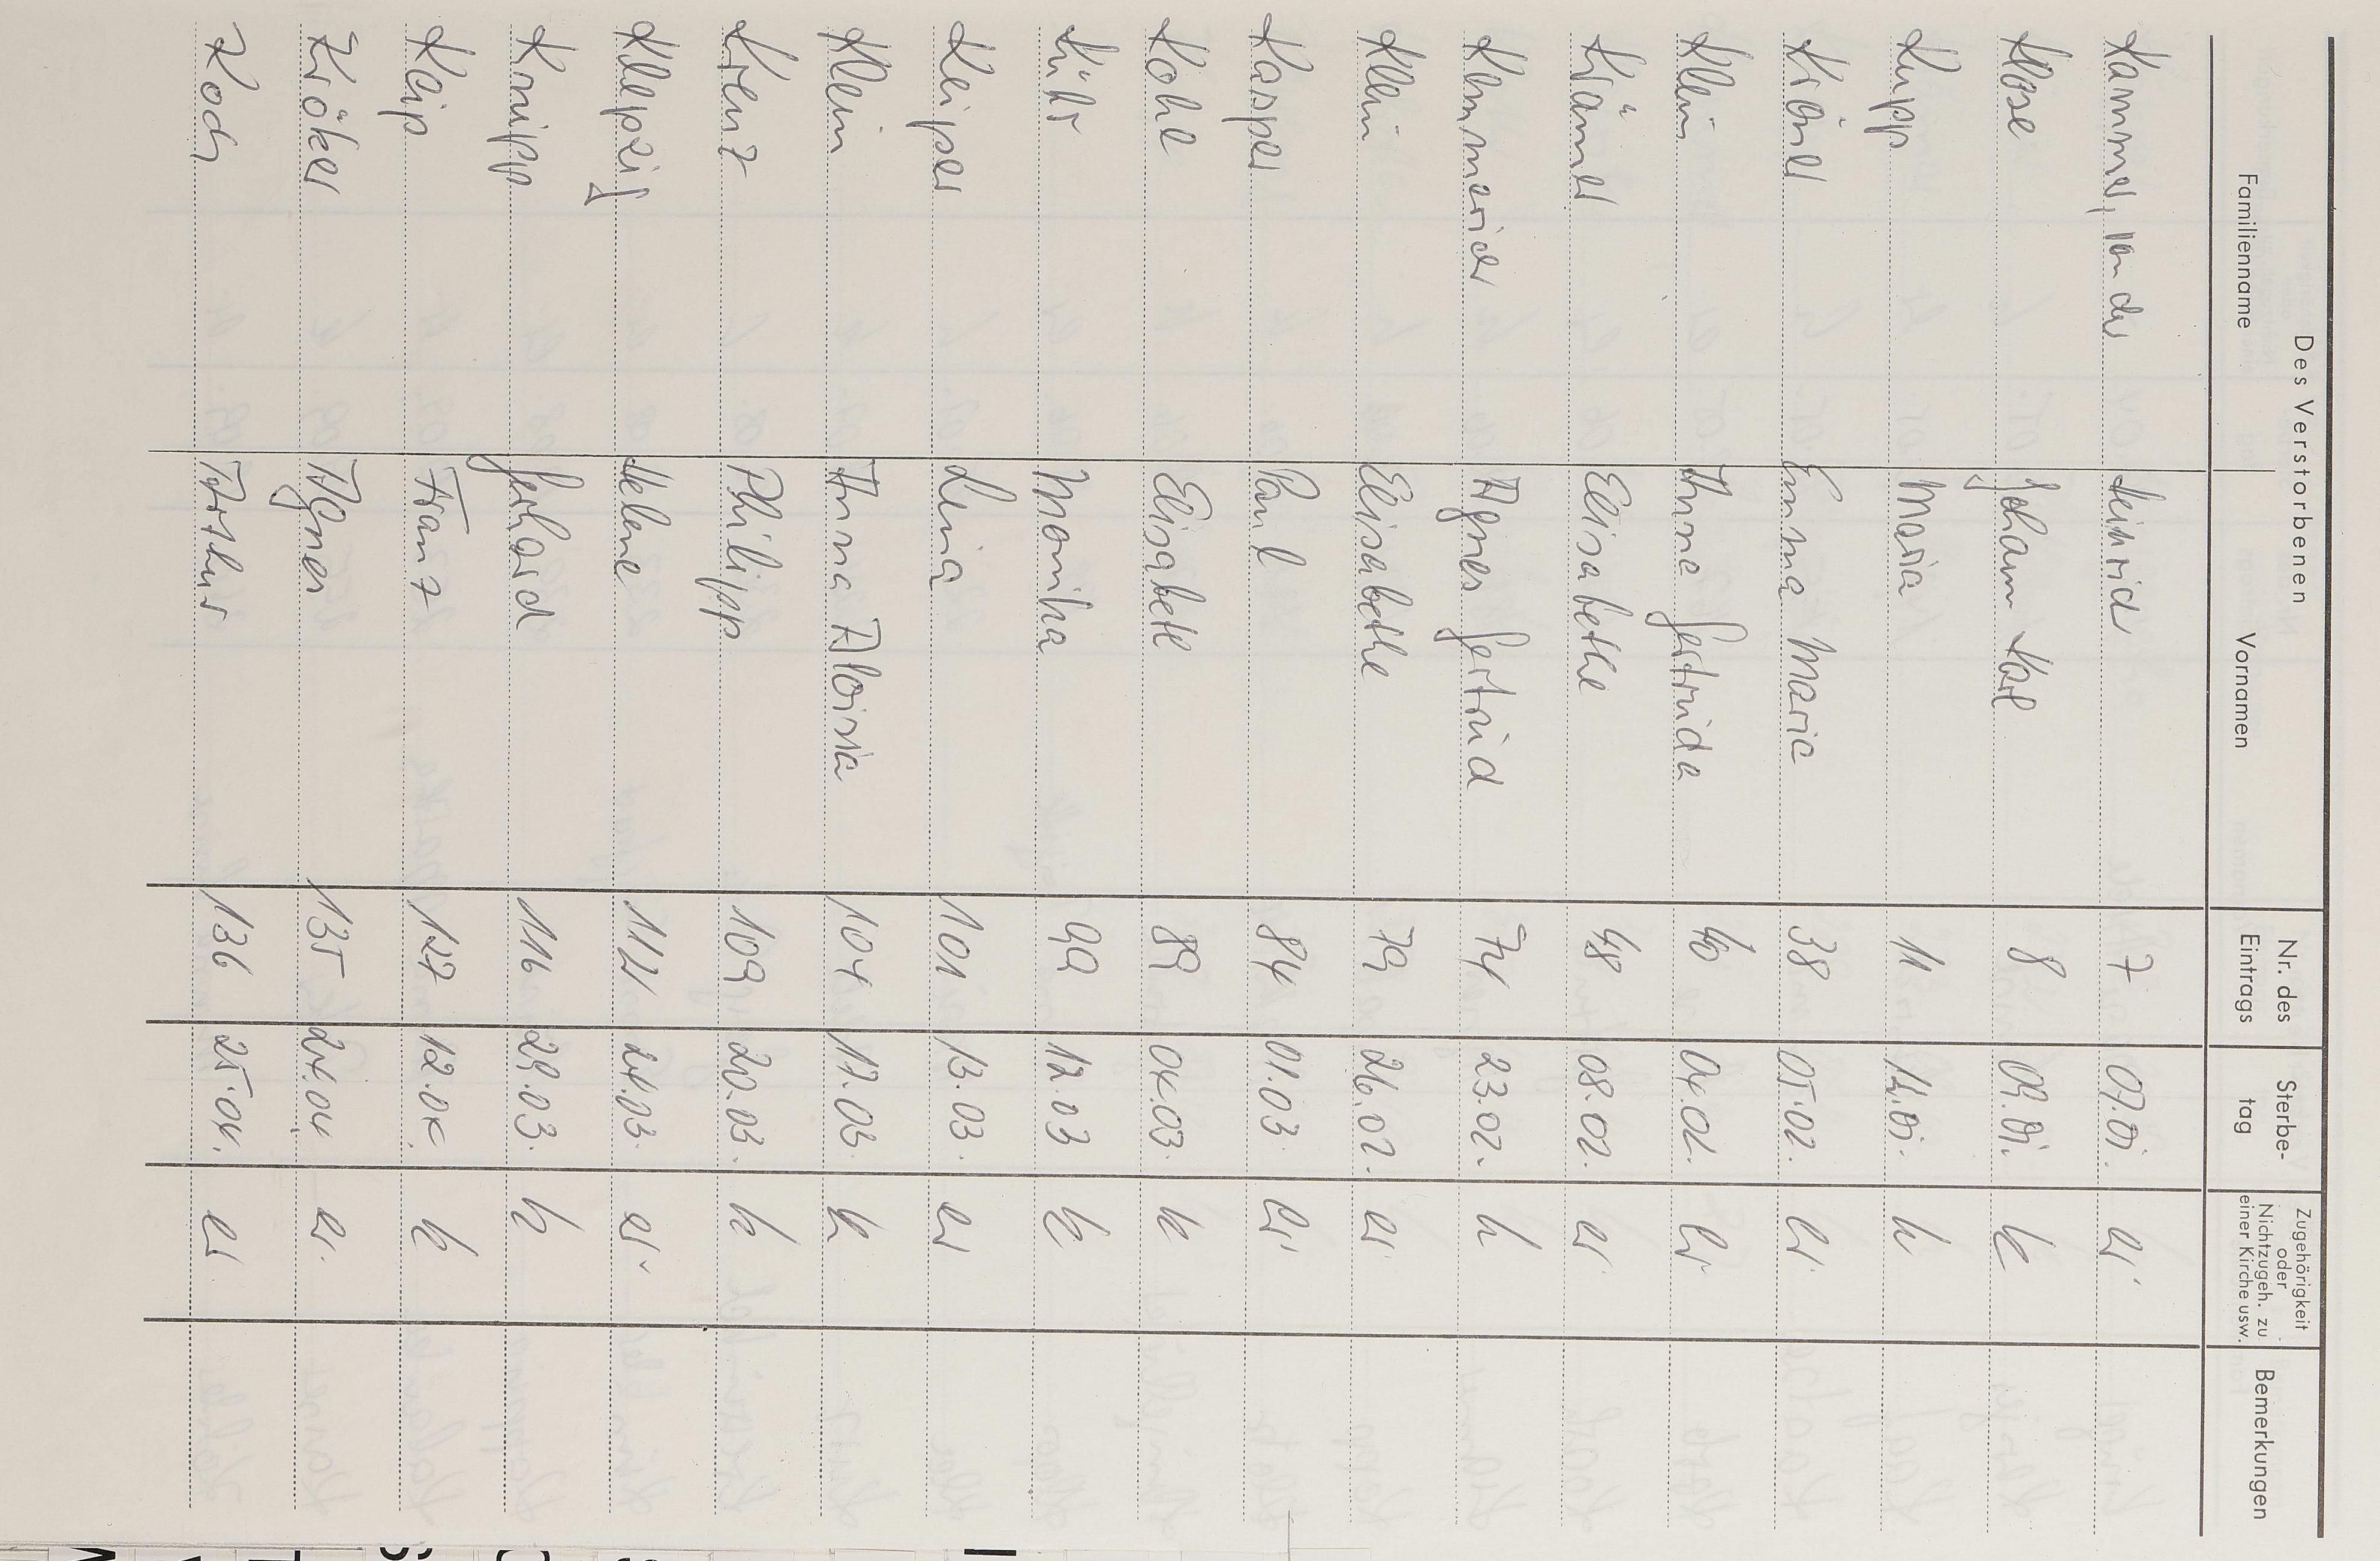 Des Verstorbenen
Familienname Vornamen Nr. des Eintrags Sterbe-tag Zugehörigkeit oder Nichtzugeh. zu einer Kirche usw. Bemerkungen
Kammer, von der Heinrich 7 07.01. ev.
Klose Johann Karl 8 09.01. k
Kupp Maria 11 12.01. k
Kröner Emma Maria 38 05.02. ev.
Klein Anna Gertruda 40 04.02. ev
Krämer Elisabethe 48 08.02. ev.
Kemmerich Agnes Gertrud 74 23.02. k
Klein Elisabethe 79 26.02. ev.
Kasper Paul 84 01.03. ev.
Kohl Elisabeth 89 04.03. k
Kühr Monika 99 12.03 k
Keiper Lena 101 13.03. ev
Klein Anna Aloisia 104 17.03. k
Kreuz Philipp 109 20.03. k
Klepzig Helene 112 24.03. ev.
Knipp Gerhard 116 29.03. k
Keip Franz 127 12.04. k
Kröker Agnes 135 24.04. ev.
Koch Arthur 136 25.04. ev.